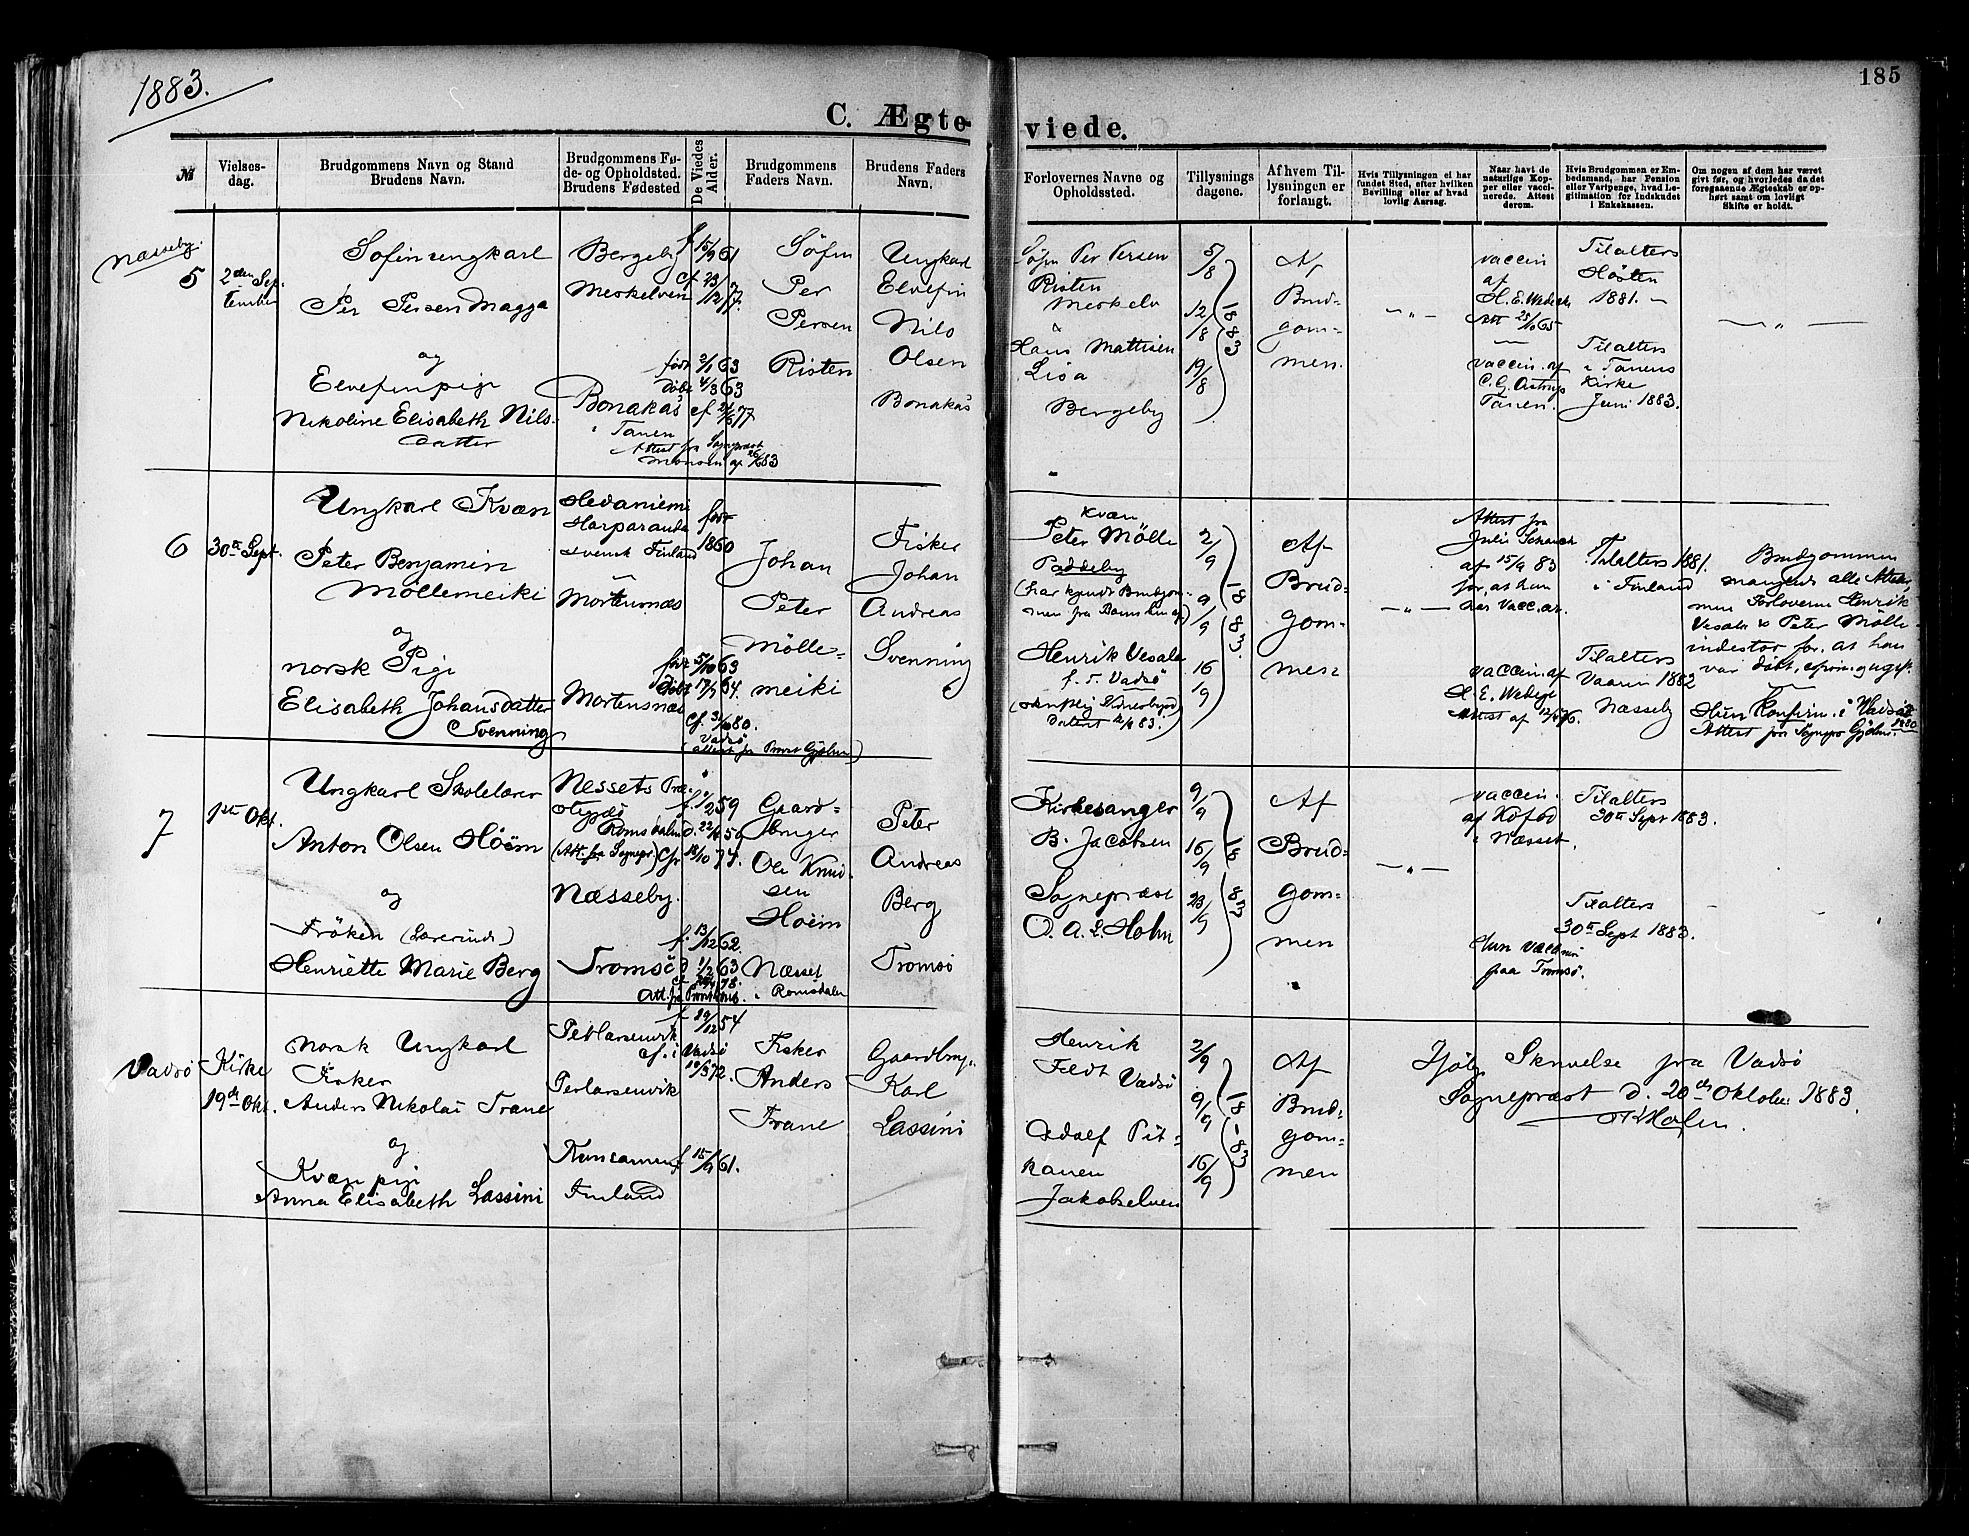 1883.
185
C. Ægteviede.
№
Vielses-
dag.
Brudgommens Navn og Stand
Brudens Navn.
Brudgommens Fø-
de- og Opholdsted.
Brudens Fødested
De Viedes
Alder.
Brudgommens
Faders Navn.
Brudens Faders
Navn.
Forlovernes Navne og
Opholdssted.
Tillysnings
dagene.
Af hvem Til-
lysningen er
forlangt.
Hvis Tillysningen ei har
fundet Sted, efter hvilken
Bevilling eller af hvad
lovlig Aarsag.
Naar havt de
naturlige Kop-
per eller vacci-
nerede. Attest
derom.
Hvis Brudgommen er Em-
bedsmand, har Pension
eller Vartpenge, hvad Le-
gitimation for Indskudet
i Enkekassen.
Om nogen af dem har været
givt før, og hvorledes da det
foregaaende Ægteskab er op-
hørt samt om lovligt
Skifte er holdt.
Næsseby.
5
2den Sep-
tember
Søfinungkarl
Per Persen Magga
og
Elvefinpige
Nikoline Elisabeth Nils-
datter
Bergeby
Meskelven
Bonakas
i Tanen
Attest fra Sognepræst
f 15/9 61
cf. 23/12 77.
født 2/1 63
døbt 4/3 63
cf 77
Søfin
Per
Persen
Risten
Ungkarl
Elvefin
Nils
Olsen
Bonakas
Søfin Per Persen
Risten
Meskelv
&
Hans Mathisen
Lisa
Bergeby
5/8
12/8
19/8
1883
Af
Brud-
gom-
men.
— " —
vaccin
af
H. E. Wedege
Att 25/10 65
vaccin. af
C. G. Astrup
Tanen.
Tilalters
Høsten
1881. —
Tilalters
i Tanens
Kirke
Juni 1883.
— " —
6
30te Sept.
Ungkarl Kvæn
Peter Benjamin
Möllemeiki
og
norsk Pige
Elisabeth Johansdatter
Svenning
Hedaniemi
Harparanda
svensk Finland
Mortensnæs
Mortensnæs
født
1860
født 5/10 63
døbt 17/1 64.
Cf. 80.
Vadsø
(attest fra Provst Gjølme)
Johan
Peter
Mölle-
meiki
Fisker
Johan
Andreas
Svenning
Kvæn
Peter Mölle
Paddeby
(har kjendt Brudgom-
men fra Barns ben af)
Henrik Vesala
f. T. Vadsø
2/9
9/9
16/9
1883.
Af
Brud-
gom-
men
— " —
Attest fra
af 15/9 83
for, at han
har vacc. ar.
vaccin. af
H. E. Wedege
Attest af
Tilalters 1881.
i Finland
Tilalters
Vaaren 1882
Næsseby
Brudgommen
manglede alle Attester,
men Forloverne Henrik
Vesala & Peter Mölle
indestor for, at han
var døbt,
Hun Konfirm. i Vadsø
1880
Attest fra Sognepr Gjølme.
7
1ste Okt.
Ungkarl Skolelærer
Anton Olsen Höem
og
Frøken (Lærerinde)
Henriette Marie Berg
Nessets Præ-
Romsdalen
(Att. fra Sognepr)
Næsseby.
Tromsö
f. 1/2 59
Cfr 13/10 74.
f. 13/12 62.
d 1/2 63
Gaard-
bruger
Ole Knud-
sen
Hoëm
Næsset
i Romsdalen
Peter
Andreas
Berg
Tromsö
Kirkesanger
B. Jacobsen
Sognepræst
O. A. L. Holm
9/9
16/9
23/9
1883
Af
Brud-
gom-
men
— " —
vaccin.
af Kofod
i Næsset.
Hun vaccin
paa Tromsø.
Tilalters
30te Sept 1883.
Tilalters
30te Sept 1883.
Vadsø Kirke
19de Okt.
norsk Ungkarl
Fisker
Anders Nikolai Trane
og
Kvænpige
Anna Elisabeth Lassini
Perlarsenvik
Perlarsenvik
Finland
f. 19/12 54
cf. i Vadsø
19/5 72.
f. 15/9 61.
Fisker
Anders
Trane
Gaardbrug.
Karl
Lassini
Henrik
Feldt Vadsø
Adolf Pit-
kanen
Jakobselven
2/9
9/9
16/9
1883
Af
Brud-
gom-
men
Ifølge Skrivelse fra Vadsø
Sognepræst d. 20de Oktober 1883.